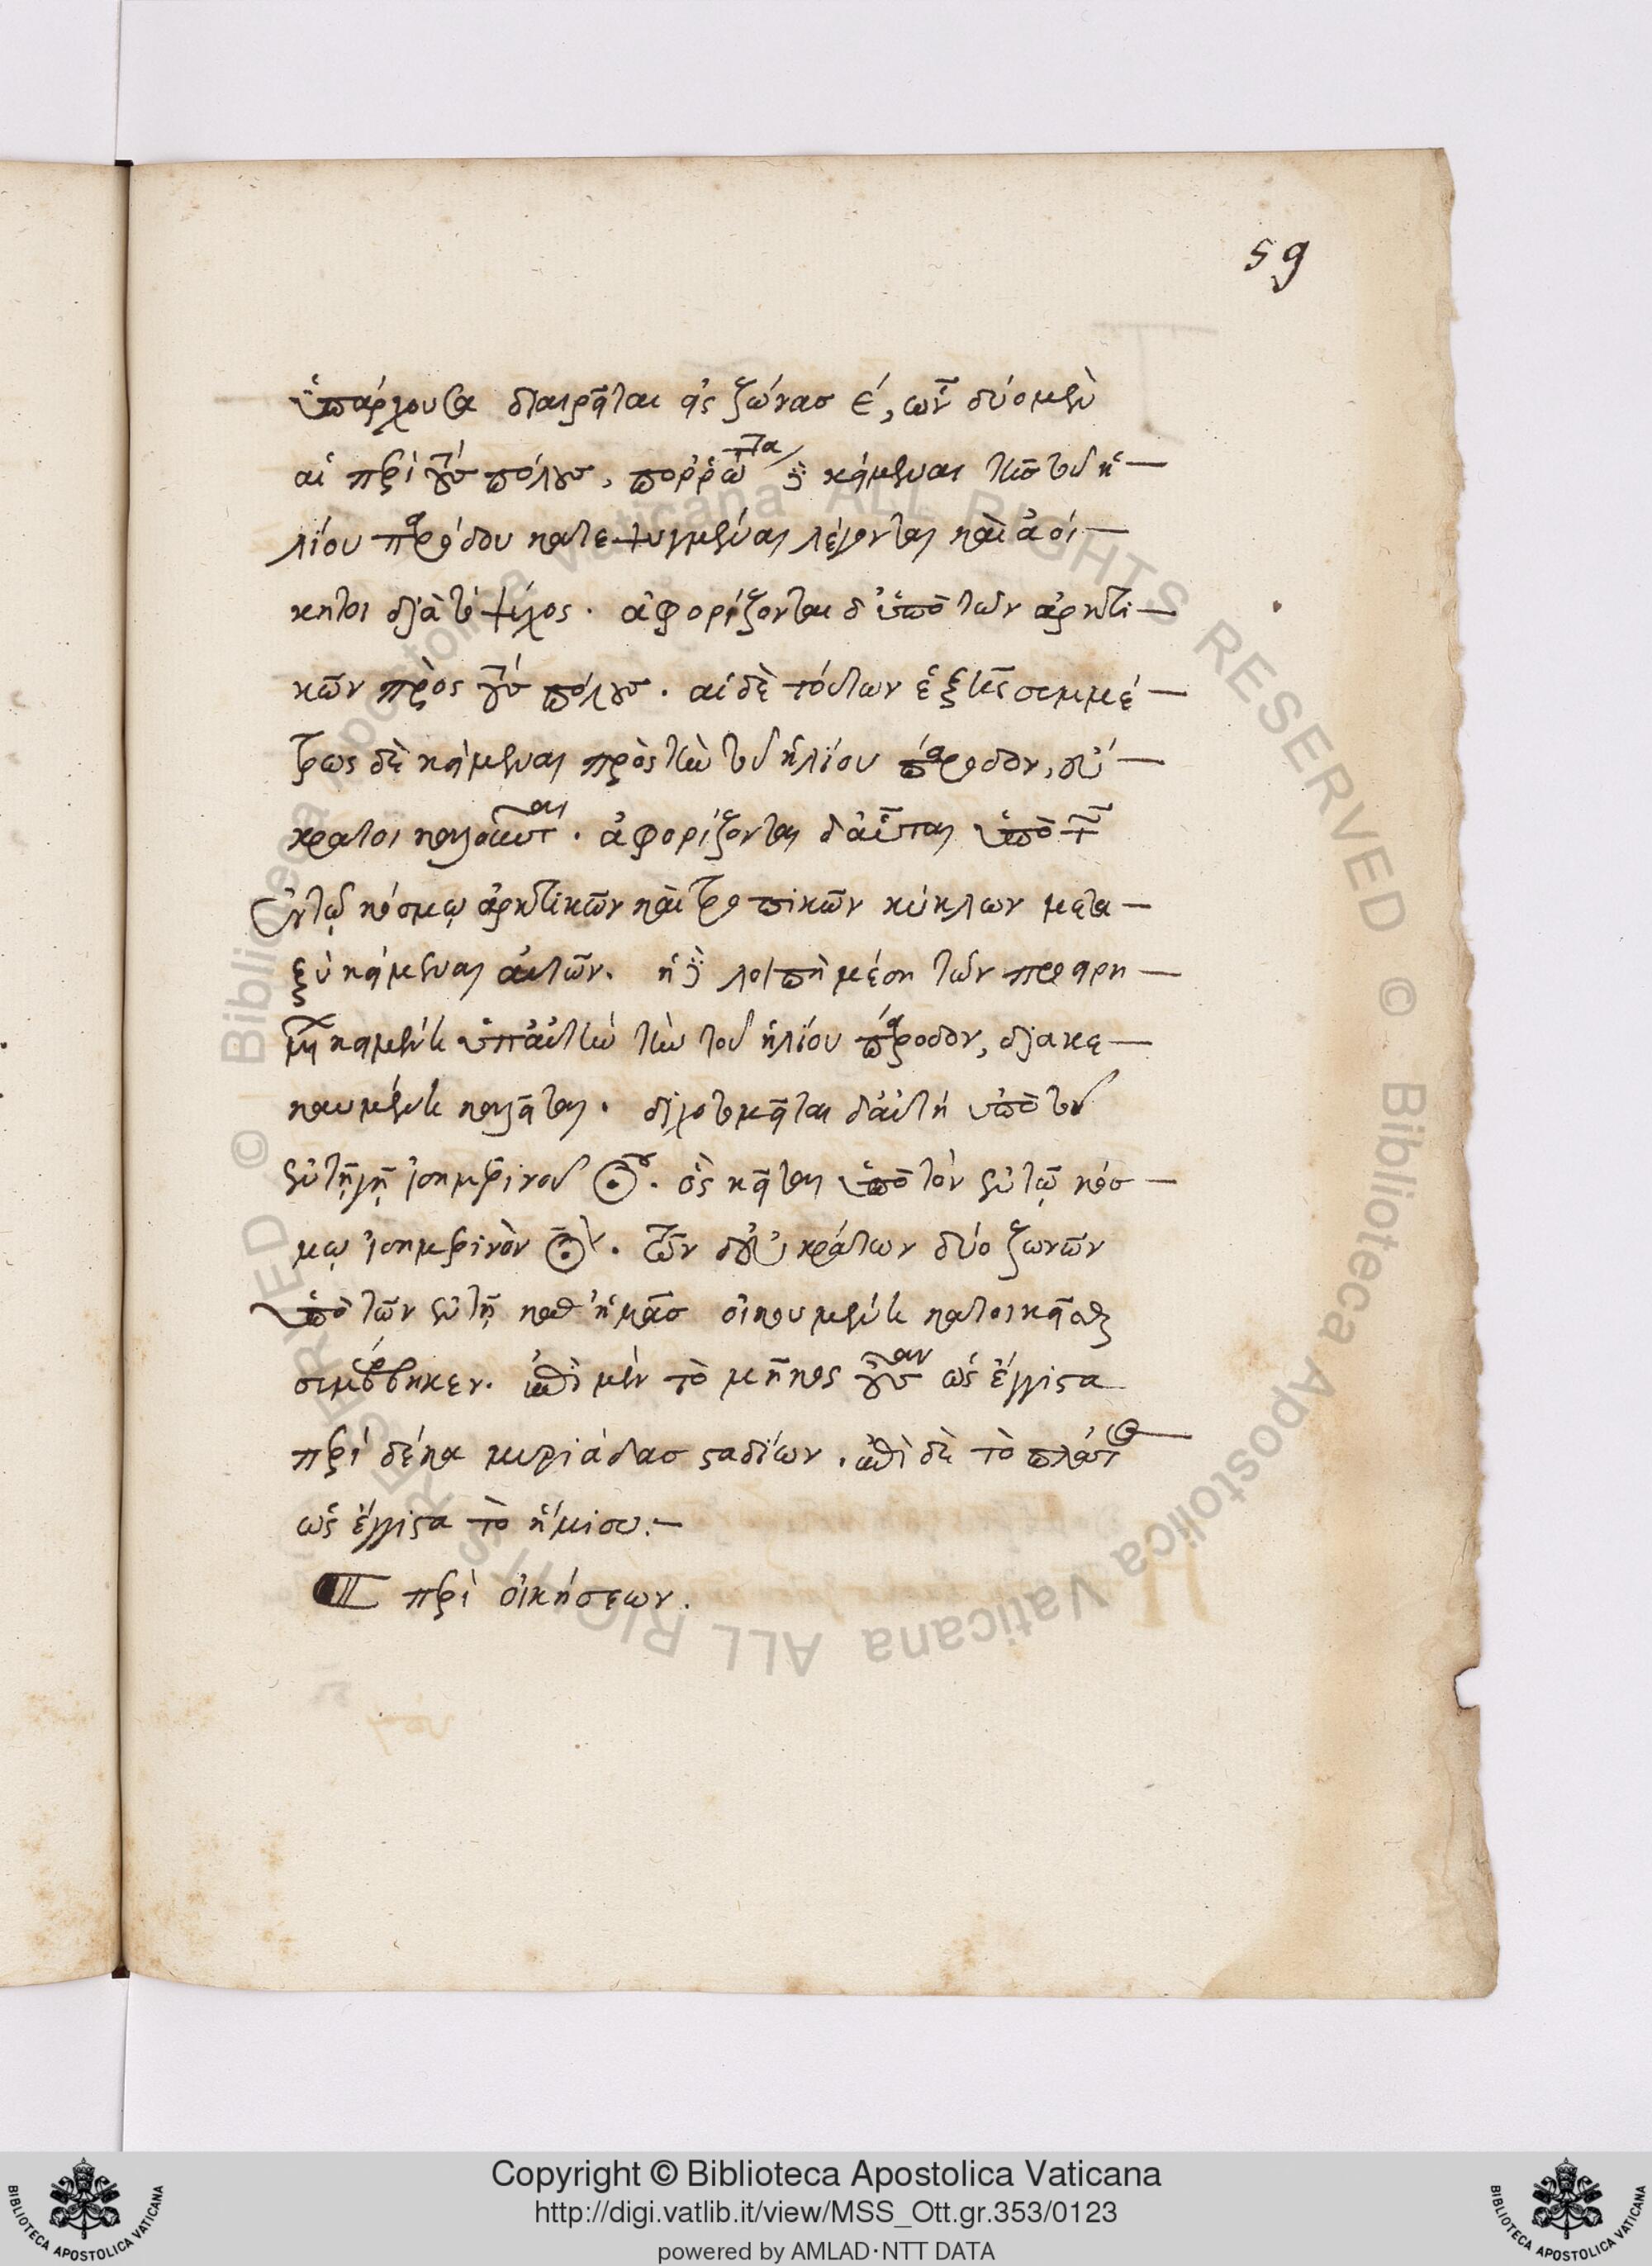 59
ὑπάρχουσα διαιρεῖται εἰς ζώνας ε´, ὧν δύο μὲν
αἱ περὶ τοὺς πόλους, πορρωτάτω δὲ κείμεναι τῆς τοῦ ἡ-
λίου παρόδου κατεψυγμέναι λέγονται καὶ ἀοί-
κητοι διὰ τὸ ψύχος. ἀφορίζονται δ' ὑπὸ τῶν ἀρκτι-
κῶν πρὸς τοὺς πόλους. αἱ δὲ τούτων ἑξῆς συμμέ-
τρως δὲ κείμεναι πρὸς τὴν τοῦ ἡλίου πάροδον, εὔ-
κρατοι καλοῦνται. ἀφορίζονται δ' αὗται ὑπὸ τῶν
ἐν τῷ κόσμῳ ἀρκτικῶν καὶ τροπικῶν κύκλων μετα-
ξὺ κείμεναι αὐτῶν. ἡ δὲ λοιπὴ μέση τῶν προειρη-
μένων κειμένη ὑπ' αὐτὴν τὴν τοῦ ἡλίου πάροδον, διακε-
καυμένη καλεῖται. διχοτομεῖται δ' αὐτὴ ὑπὸ τοῦ
ἐν τῇ γῇ ἰσημερινοῦ κύκλου. ὃς κεῖται ὑπὸ τὸν ἐν τῷ κόσ-
μῳ ἰσημερινὸν κύκλον. τῶν δ' εὐκράτων δύο ζωνῶν
ὑπὸ τῶν ἐν τῇ καθ' ἡμᾶς οἰκουμένῃ κατοικεῖσθαι
συμβέβηκεν. ἐπὶ μὲν τὸ μῆκος οὖσαν ὡς ἔγγιστα
περὶ δέκα μυριάδας σταδίων. ἐπὶ δὲ τὸ πλάτος
ὡς ἔγγιστα τὸ ἥμισυ.-
περὶ οἰκήσεων.
Copyright © Biblioteca Apostolica Vaticana
http://digi.vatlib.it/view/MSS_Ott.gr.353/0123
powered by AMLAD·NTT DATA
BIBLIOTECA APOSTOLICA VATICANA
BIBLIOTECA APOSTOLICA VATICANA
© Biblioteca Apostolica Vaticana ALL RIGHTS RESERVED © Biblioteca Apostolica Vaticana ALL RIGHTS RESERVED